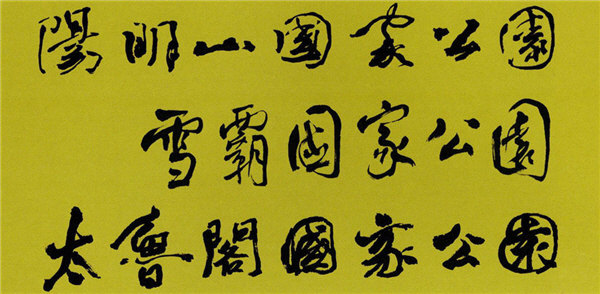 陽明山國家公園
雪霸国家公園
太魯閣國家公園